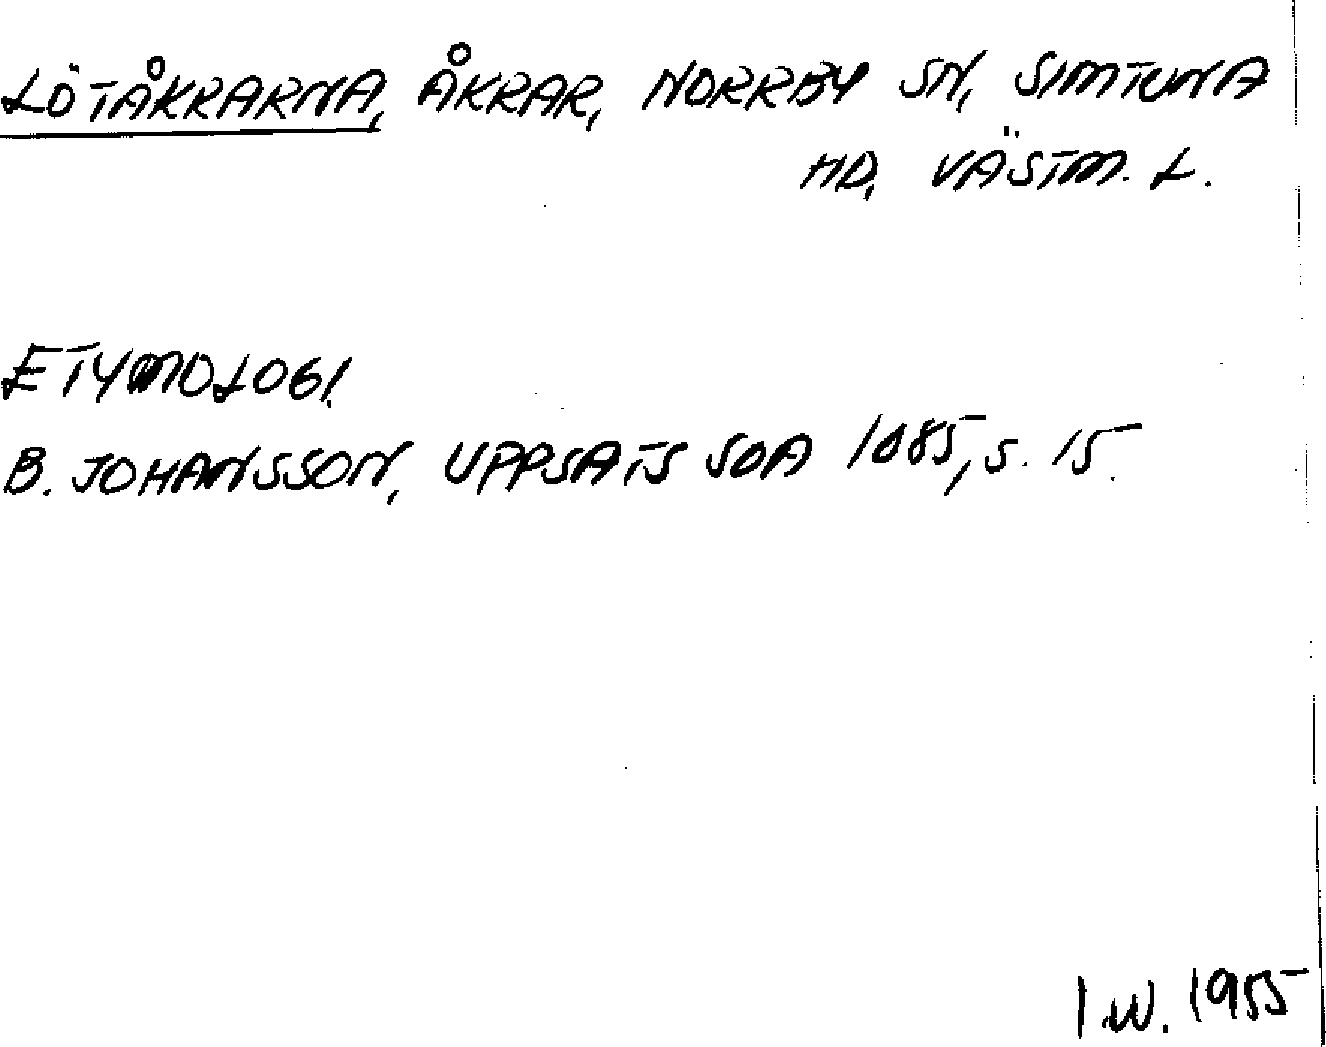 LÖTÅKRARNA, ÅKRAR, NORRBY SN, SIMTUNA
HD, VÄSTM. L.
ETYMOLOGI.
B. JOHANSSON, UPPSATS SOA 1085, S. 15.
I W. 1955